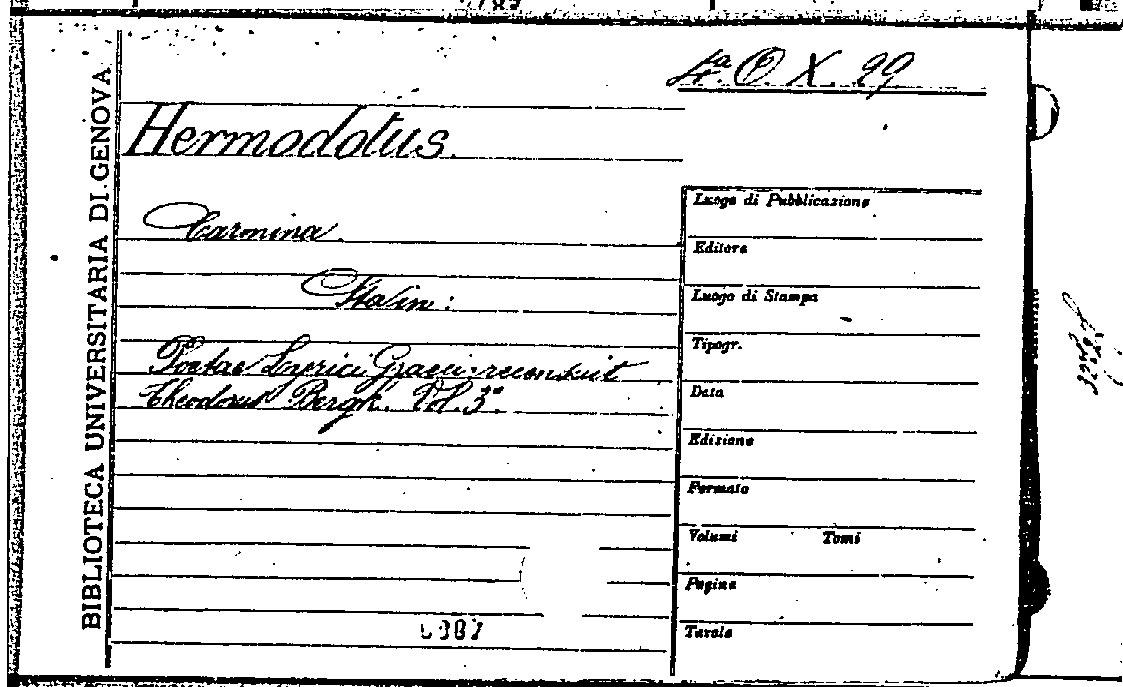 4ª O. X. 29
Hermodotus.
Carmina.
Sta in:
Poetae Lyrici Graeci recensuit
Theodorus Bergk. Vol. 3º.
BIBLIOTECA UNIVERSITARIA DI GENOVA
Luogo di Pubblicazione
Editore
Luogo di Stampa
Tipogr.
Data
Edizione
Formato
Volumi Tomi
Pagine
Tavole